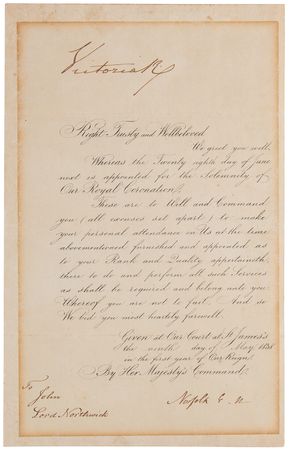 Victoria R
Right Trusty and Wellbeloved
We greet you well.
Whereas the Twenty eighth day of June
next is appointed for the Solemnity of
Our Royal Coronation;
These are to Will and Command
you (all excuses set apart) to make
your personal attendance on Us at the time
abovementioned furnished and appointed as
to your Rank and Quality appertaineth,
there to do and perform all such Services
as shall be required and belong unto you.
Whereof you are not to fail. And so
We bid you most heartily farewell.
Given at Our Court at St. James's
the ninth day of May 1838
in the first year of Our Reign
By Her Majesty's Command,
To
John
Lord Northwick
Norfolk E. M.